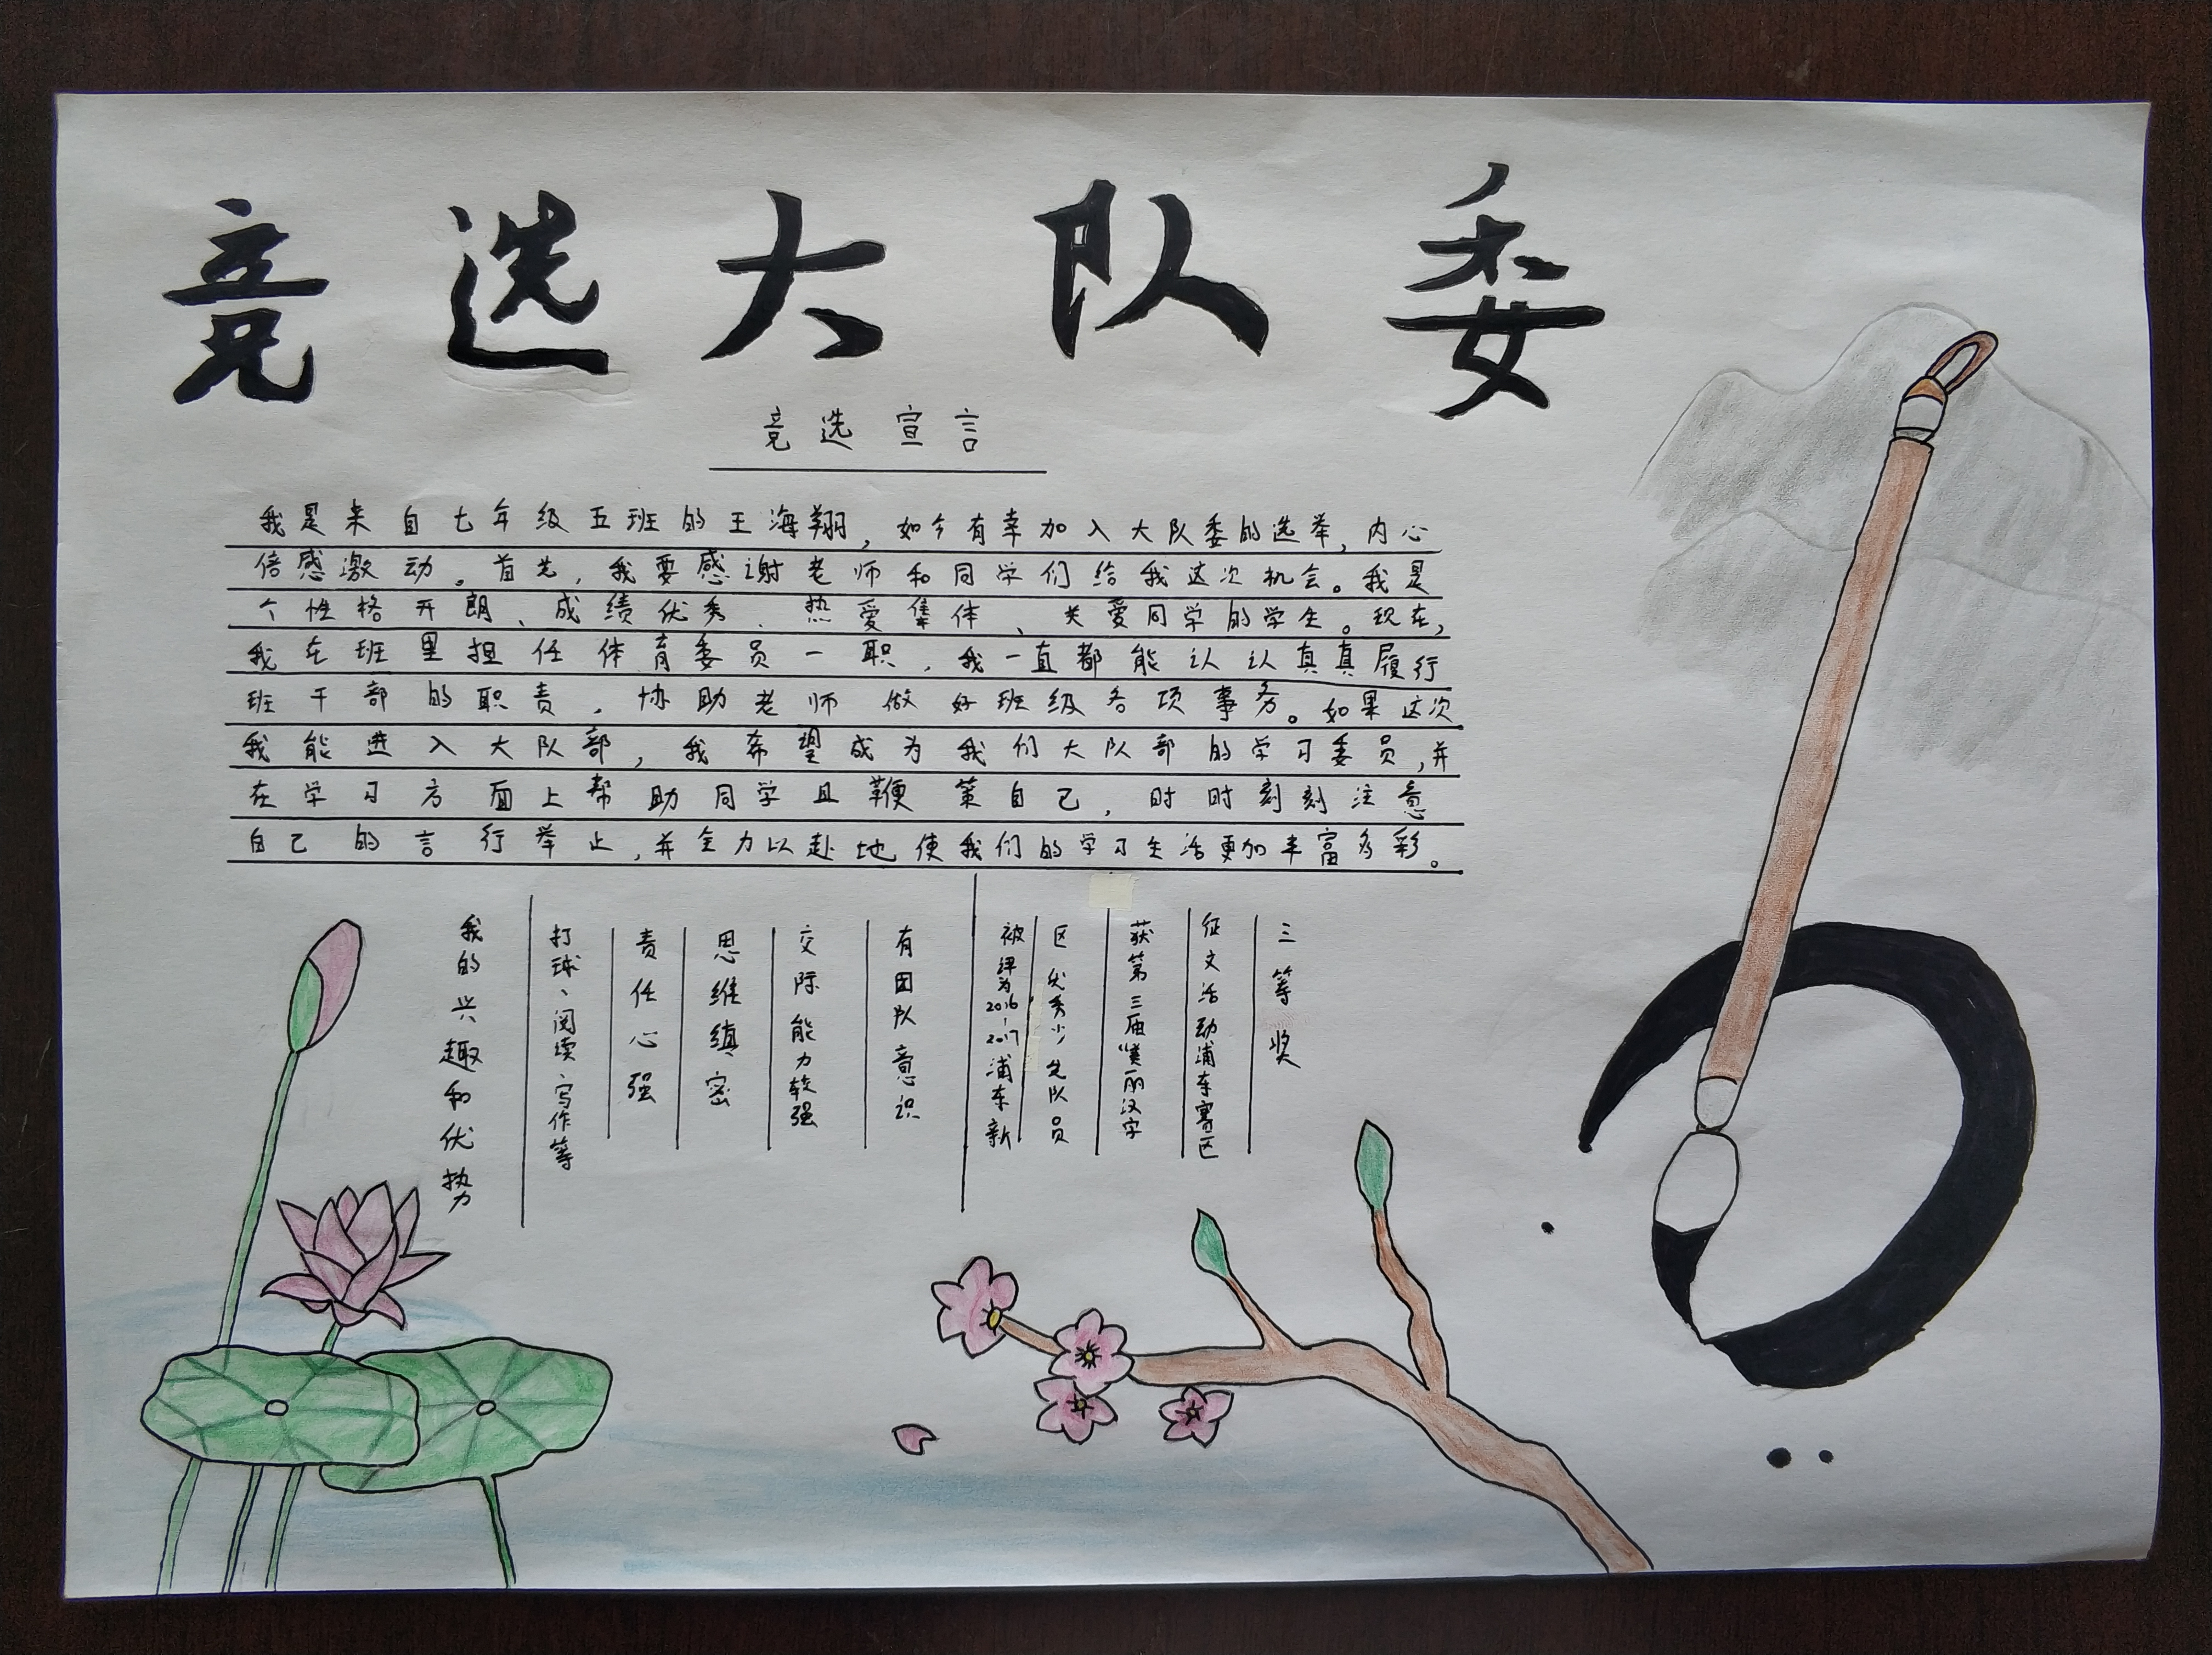 竞选大队委
竞选宣言
我是来自七年级五班的王海翔,如今有幸加入大队委的选举,内心
倍感激动。首先,我要感谢老师和同学们给我这次机会。我是
个性格开朗、成绩优秀、热爱集体、关爱同学的学生。现在,
我在班里担任体育委员一职,我一直都能认认真真履行
班干部的职责,协助老师做好班级各项事务。如果这次
我能进入大队部,我希望成为我们大队部的学习委员,并
在学习方面上帮助同学且鞭策自己,时时刻刻注意
自己的言行举止,并全力以赴地使我们的学习生活更加丰富多彩。
我的兴趣和优势
打球、阅读、写作等
责任心强
思维缜密
交际能力较强
有团队意识
被评为2016-2017浦东新
区优秀少先队员
获第三届“美丽汉字
征文活动浦东赛区
三等奖